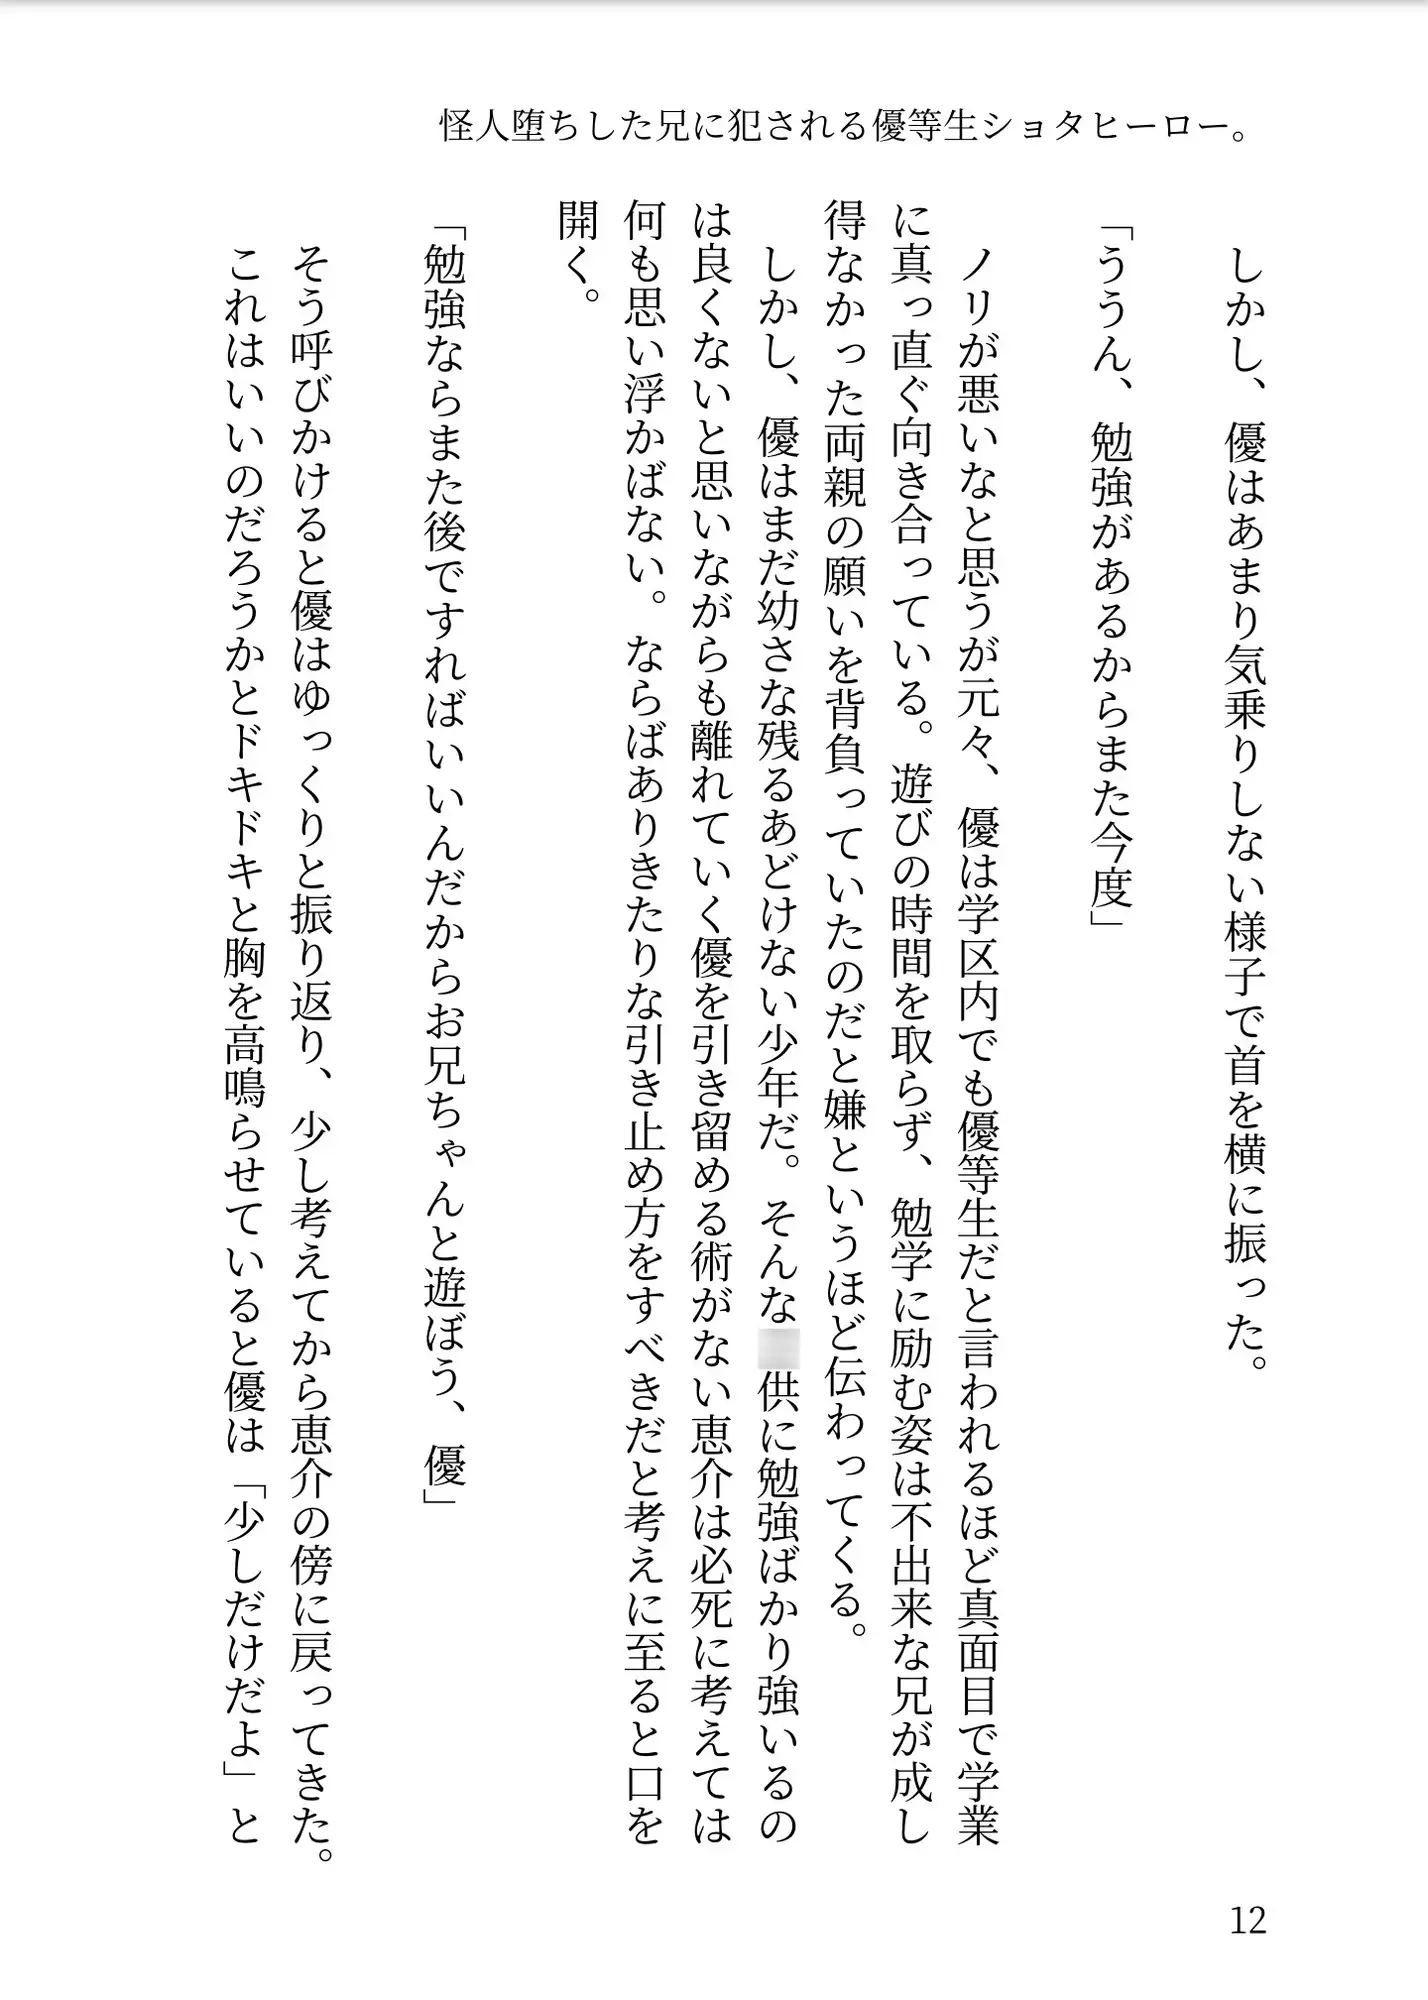 しかし、優はあまり気乗りしない様子で首を横に振った。
「ううん、勉強があるからまた今度」
ノリが悪いなと思うが元々、優は学区内でも優等生だと言われるほど真面目で学業
に真っ直ぐ向き合っている。遊びの時間を取らず、勉学に励む姿は不出来な兄が成し
得なかった両親の願いを背負っていたのだと嫌というほど伝わってくる。
しかし、優はまだ幼さな残るあどけない少年だ。そんな供に勉強ばかり強いるの
は良くないと思いながらも離れていく優を引き留める術がない恵介は必死に考えては
何も思い浮かばない。ならばありきたりな引き止め方をすべきだと考えに至ると口を
開く。
「勉強ならまた後ですればいいんだからお兄ちゃんと遊ぼう、優」
そう呼びかけると優はゆっくりと振り返り、少し考えてから恵介の傍に戻ってきた。
これはいいのだろうかとドキドキと胸を高鳴らせていると優は「少しだけだよ」と
12